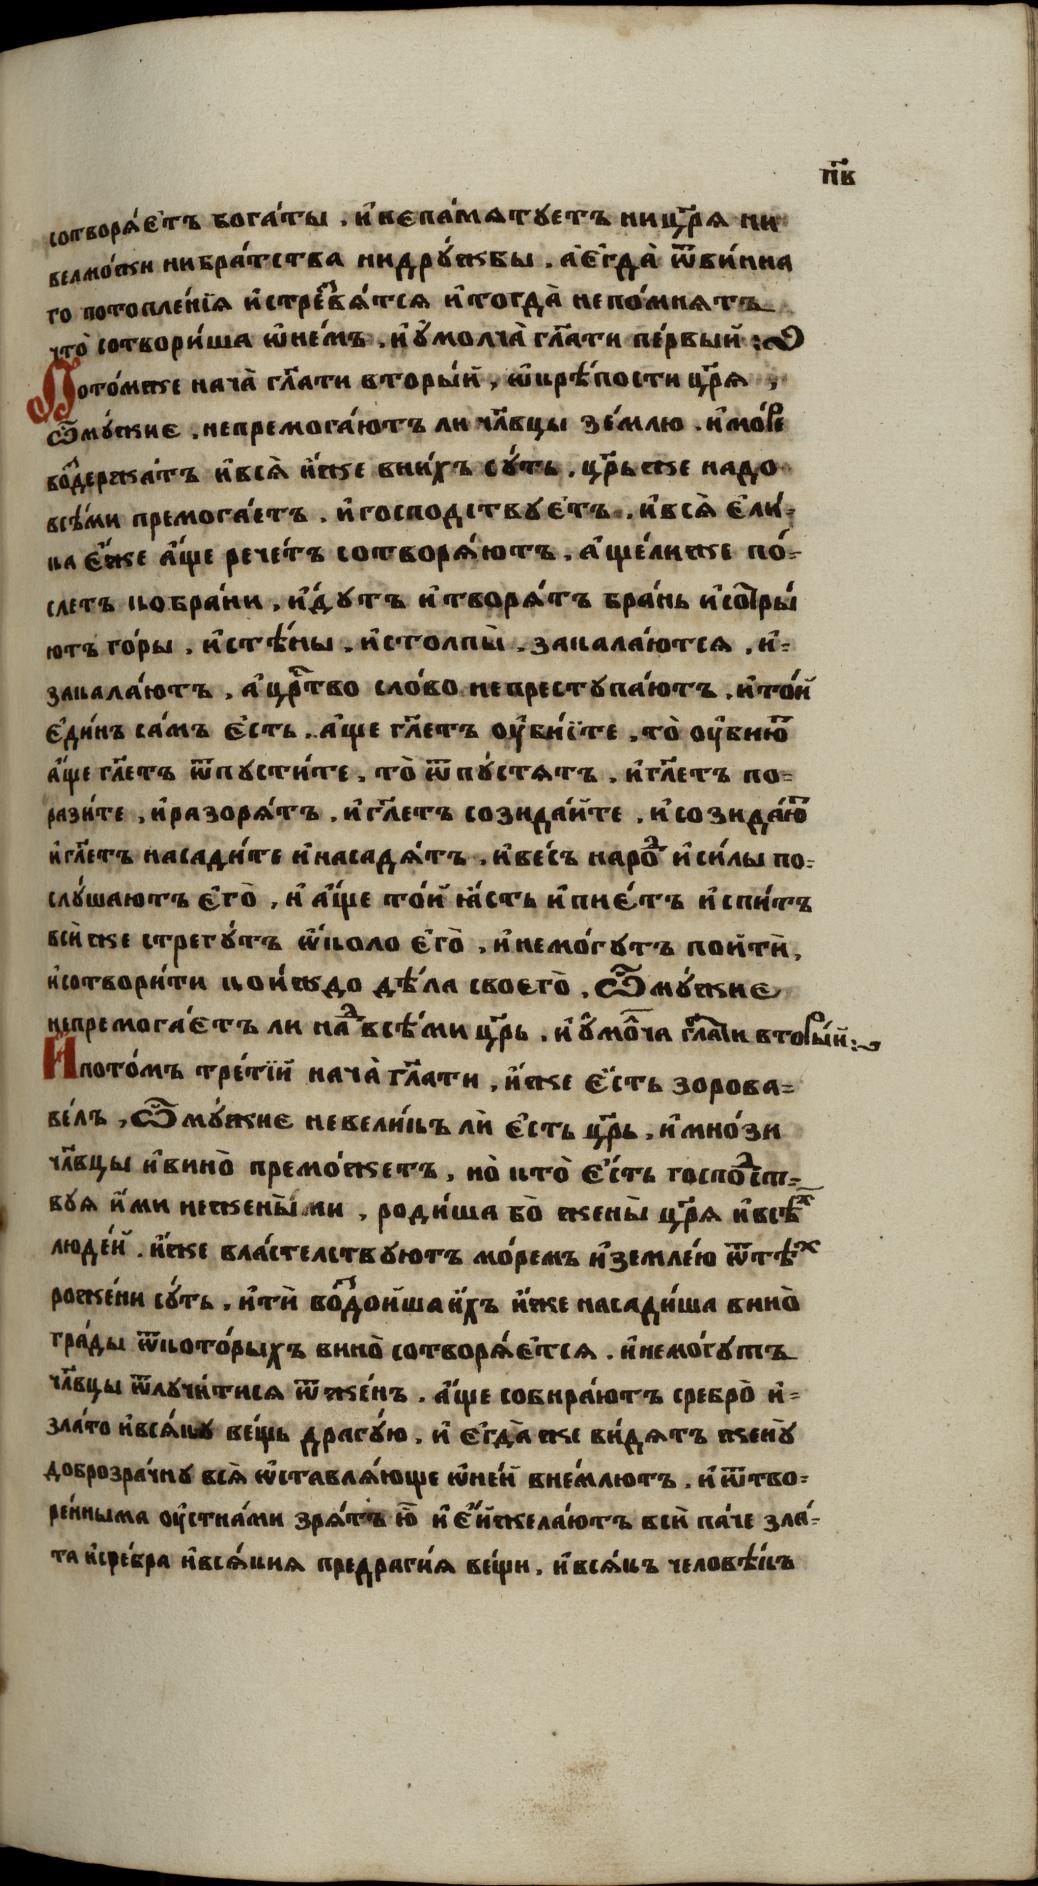 п҃в
сотворя́етъ богаты . и҆ непа́мятуетъ ни цр҃я ни
велмо́жи ни бра́тства ни дру́жбы . а҆ є҆гда̀ ѿ ви́нна
го потопле́нїя и҆стрезвя́тся и҆ тогда̀ непо́мнятъ
что̀ сотвори́ша ѡ҆ не́мъ . и҆ ѹ҆молча̀ гл҃ати пе́рвый :
Пото́мже нача̀ гл҃ати вторы́й , ѡ҆ крѣ́пости цр҃я ,
Ѽ му́жие . непремога́ютъ ли чл҃вцы зе́млю . и҆ мо́ре
воⷥдержа́тъ и҆ вся̀ и҆́же в ни́хъ су́ть . цр҃ь же надо
всѣ́ми премога́етъ . и҆ господствуе́тъ . и҆ вся̀ є҆ли́-
ка є҆́же а҆́ще рече́тъ сотворя́ютъ . а҆ще́ли же по́-
слетъ ко бра́ни , и҆́дутъ и҆ творя́тъ бра́нь и҆ соⷥры́
ютъ го́ры . и҆ стѣ́ны . и҆ столпы̀ . закала́ются . и҆-
закала́ютъ . а҆ црⷭ҇тво сло́во непреступа́ютъ . и҆ то́й
є҆ди́нъ са́мъ є҆́сть . а҆́ще гл҃етъ ѹ҆би́йте , то̀ ѹ҆бию́ⷮ
а҆́ще гл҃етъ ѿпусти́те , то̀ ѿпу́стятъ . и҆ гл҃етъ по-
рази́те , и҆ разоря́тъ . и҆ гл҃етъ созида́йте , и҆ созида́юⷮ
и҆ гл҃етъ насади́те и҆ насадя́тъ . и҆ ве́съ наро́ⷣ и҆ си́лы по-
слу́шаютъ є҆го̀ , и҆ а҆́ще то́й ꙗ҆́сть и҆ пие́тъ и҆ спи́тъ
всѝ же стрегу́тъ ѡ҆́коло є҆го̀ , и҆ немо́гутъ пойтѝ ,
и҆ сотвори́ти ко́иждо дѣ́ла своего̀ , Ѽ му́жие
непремога́етъ ли наⷣ всѣ́ми цр҃ь . и҆ ѹ҆моⷧ҇ча гл҃ати вторы́й :
И пото́мъ тре́тїй нача̀ гл҃ати , и҆́же є҆́сть зорова-
ве́лъ , Ѽ му́жие невели́къ лѝ є҆́сть цр҃ь , и҆ мно́зи
чл҃вцы и҆ вино̀ премо́жетъ , но̀ кто̀ є҆́сть госпоⷣст-
вуя и҆́ми не жены́ ми , роди́ша бо̀ жены̀ цр҃я и҆ всѣⷯ
люде́й . и҆́же вла́стелствуютъ мо́ремъ и҆ земле́ю ѿ тѣ́ⷯ
роже́ни су́ть . и҆ тѝ воⷥдои́ша и҆́хъ и҆́же насади́ша вино̀
гра́ды ѿ кото́рыхъ вино̀ сотворя́ется . и҆ немо́гутъ
чл҃вцы ѿлучи́тися ѿ же́нъ . а҆́ще собира́ютъ сребро̀ и҆-
зла́то и҆ вся́ку ве́щь драгу́ю , и҆ є҆гда̀ же ви́дятъ жену̀
доброзра́чну вся̀ ѡ҆ставля́юще ѡ҆ не́й вне́млютъ . и҆ ѿтво-
ре́нныма ѹ҆стна́ми зря́тъ ю҆̀ и҆ є҆́й жела́ютъ всѝ па́че зла́-
та и҆ сре́бра и҆ вся́кия предраги́я ве́щи . и҆ вся́къ человѣ́къ